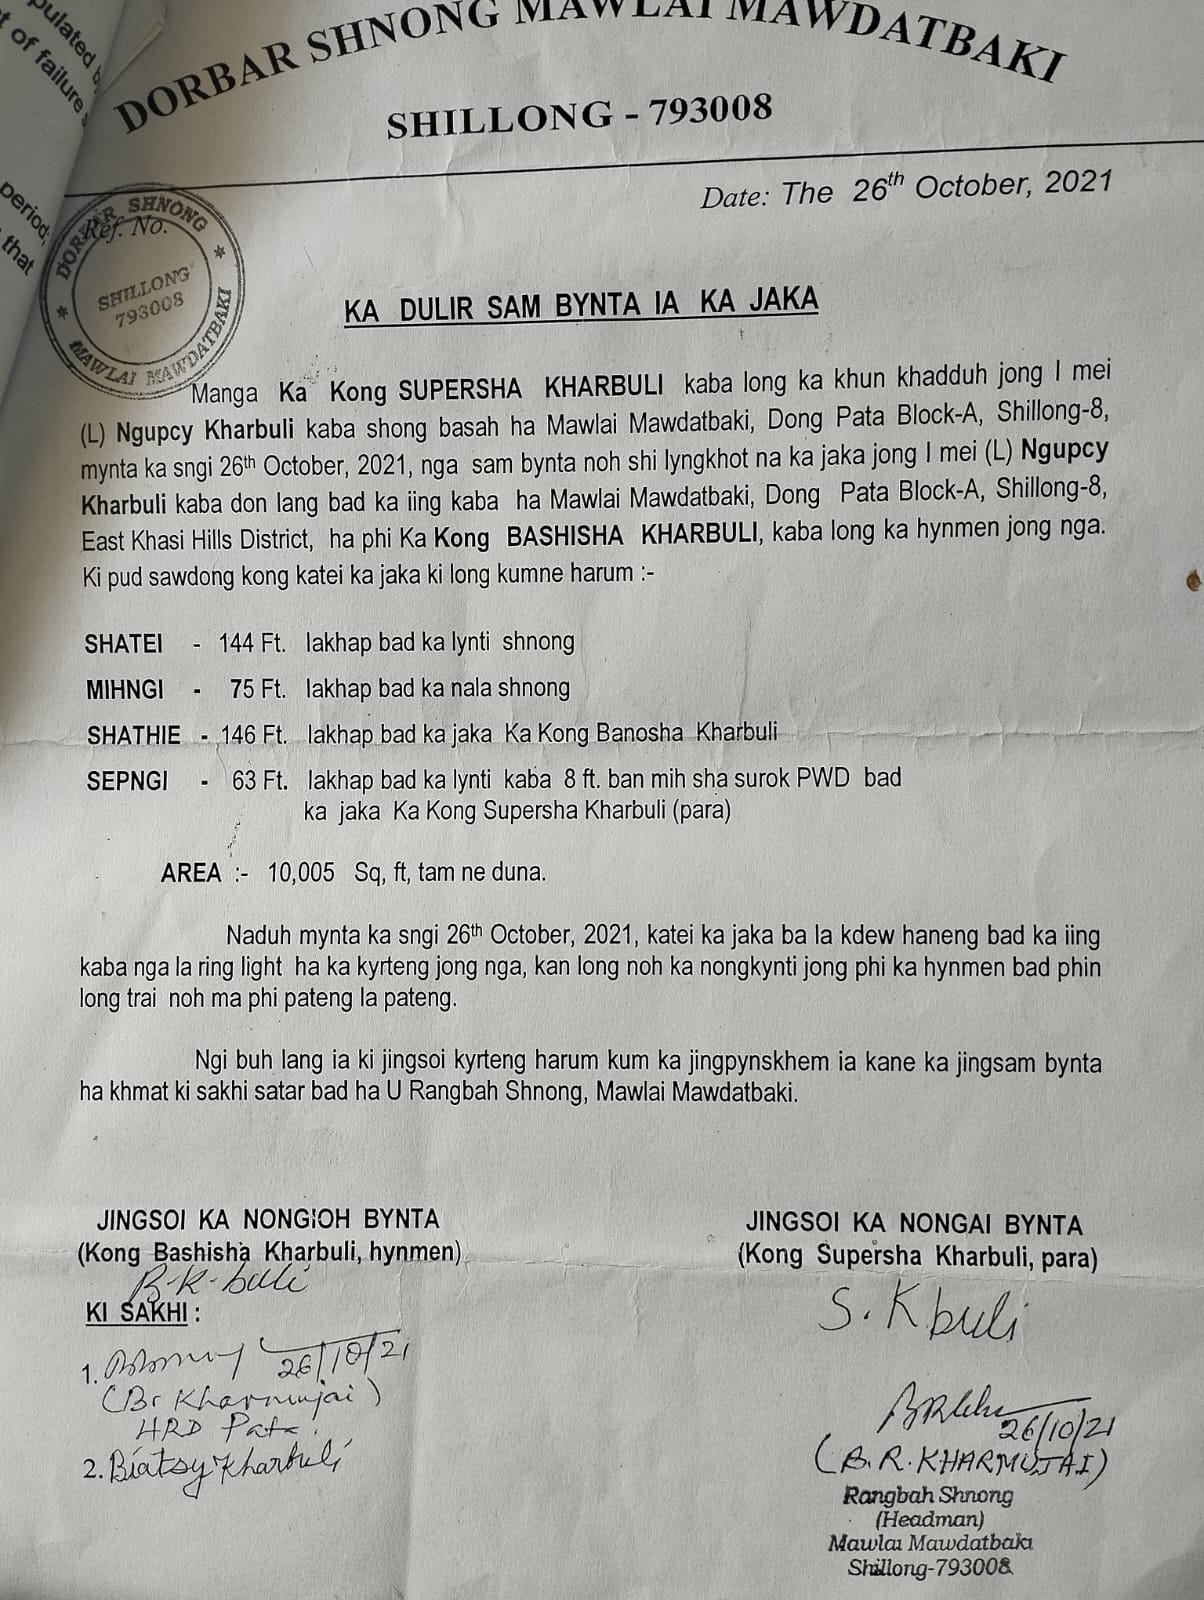 pulated b
t of failure
period;
that
DORBAR SHNONG MAWLAI MAWDATBAKI
SHILLONG - 793008
Date: The 26th October, 2021
Ref. No.
DORBAR SHNONG
SHILLONG
793008
MAWLAI MAWDATBAKI
KA DULIR SAM BYNTA IA KA JAKA
Manga Ka Kong SUPERSHA KHARBULI kaba long ka khun khadduh jong I mei
(L) Ngupcy Kharbuli kaba shong basah ha Mawlai Mawdatbaki, Dong Pata Block-A, Shillong-8,
mynta ka sngi 26th October, 2021, nga sam bynta noh shi lyngkhot na ka jaka jong I mei (L) Ngupcy
Kharbuli kaba don lang bad ka iing kaba ha Mawlai Mawdatbaki, Dong Pata Block-A, Shillong-8,
East Khasi Hills District, ha phi Ka Kong BASHISHA KHARBULI, kaba long ka hynmen jong nga.
Ki pud sawdong kong katei ka jaka ki long kumne harum :-
SHATEI - 144 Ft. lakhap bad ka lynti shnong
MIHNGI - 75 Ft. lakhap bad ka nala shnong
SHATHIE - 146 Ft. lakhap bad ka jaka Ka Kong Banosha Kharbuli
SEPNGI - 63 Ft. lakhap bad ka lynti kaba 8 ft. ban mih sha surok PWD bad
ka jaka Ka Kong Supersha Kharbuli (para)
AREA :- 10,005 Sq, ft, tam ne duna.
Naduh mynta ka sngi 26th October, 2021, katei ka jaka ba la kdew haneng bad ka iing
kaba nga la ring light ha ka kyrteng jong nga, kan long noh ka nongkynti jong phi ka hynmen bad phin
long trai noh ma phi pateng la pateng.
Ngi buh lang ia ki jingsoi kyrteng harum kum ka jingpynskhem ia kane ka jingsam bynta
ha khmat ki sakhi satar bad ha U Rangbah Shnong, Mawlai Mawdatbaki.
JINGSOI KA NONGIOH BYNTA
(Kong Bashisha Kharbuli, hynmen)
B-K-buli
JINGSOI KA NONGAI BYNTA
(Kong Supersha Kharbuli, para)
S. Kbuli
KI SAKHI :
1. 26/10/21
(Br Kharmujai)
HRD Pata
2. Biatsy Kharbuli
26/10/21
(B.R. KHARMUJAI)
Rangbah Shnong
(Headman)
Mawlai Mawdatbaki
Shillong-793008